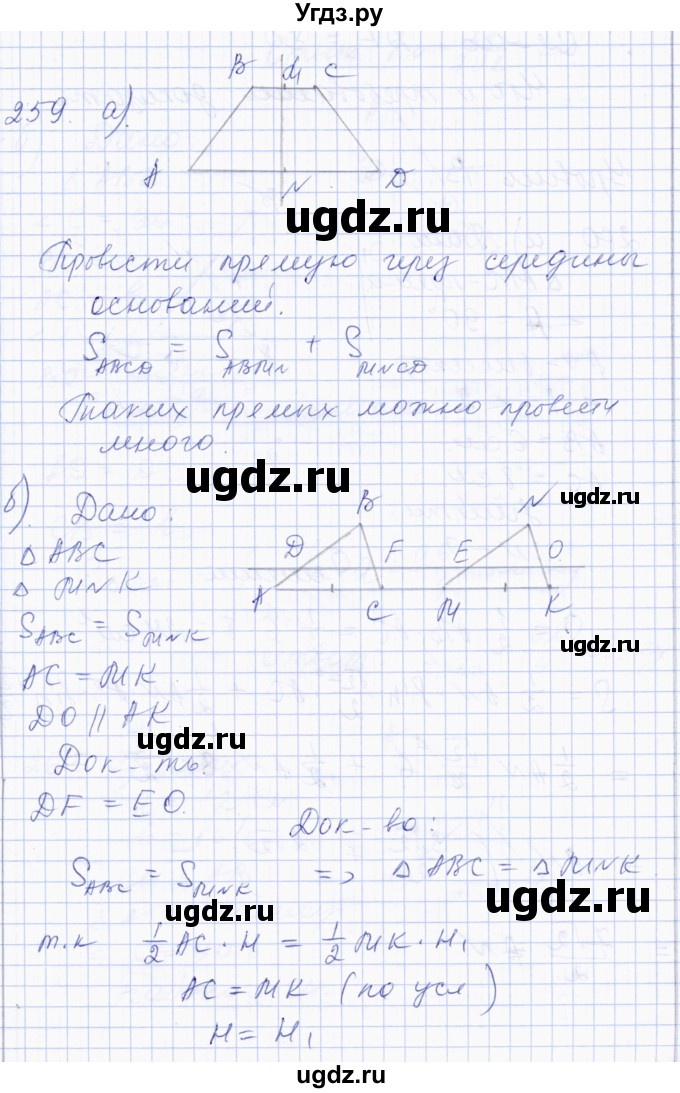 Угдз.ру
B M C
259. а).
A N D
ugdz.ru
Провести прямую через середины
оснований.
S_ABCD = S_ABMN + S_MNCD
Таких прямых можно провести
много.
ugdz.ru
ugdz.ru
б). Дано:
B N
D F E O
A C M K
△ ABC
△ MNK
S_ABC = S_MNK
ugdz.ru
AC = MK
DO || AK
ugdz.ru
Док-ть:
DF = EO.
Док-во:
S_ABC = S_MNK => △ ABC = △ MNK
ugdz.ru
ugdz.ru
т.к 1/2 AC · H = 1/2 MK · H₁
AC = MK (по усл)
H = H₁
ugdz.ru